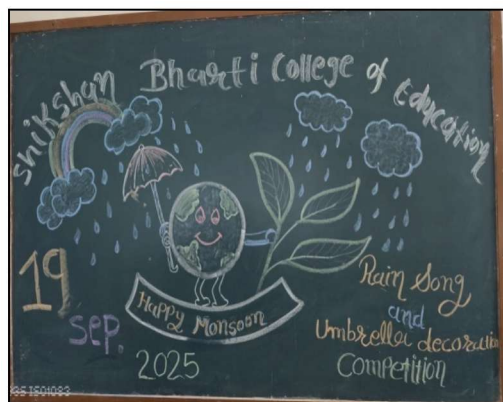 Shikshan Bharti College of Education
19
Sep.
2025
Happy Monsoon
Rain Song
and
Umbrella decoration
Competition